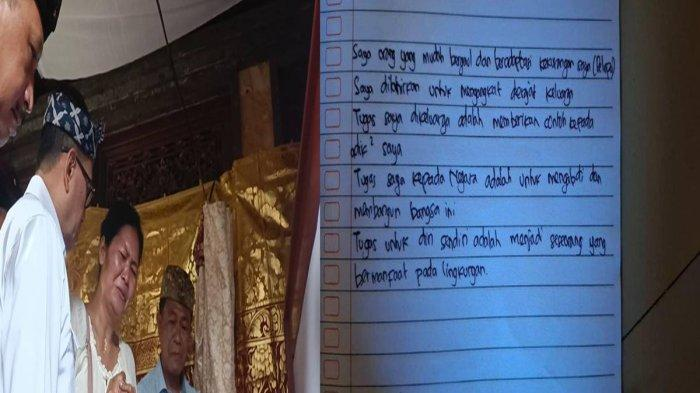 Saya orang yang mudah bergaul dan beradaptasi kekurangan saya (Pelupa)
Saya dilahirkan untuk mengangkat derajat keluarga
Tugas saya dikeluarga adalah memberikan contoh kepada
adik² saya
Tugas saya kepada Negara adalah untuk mengabdi dan
membangun bangsa ini
Tugas untuk diri sendiri adalah menjadi seseorang yang
bermanfaat pada lingkungan.